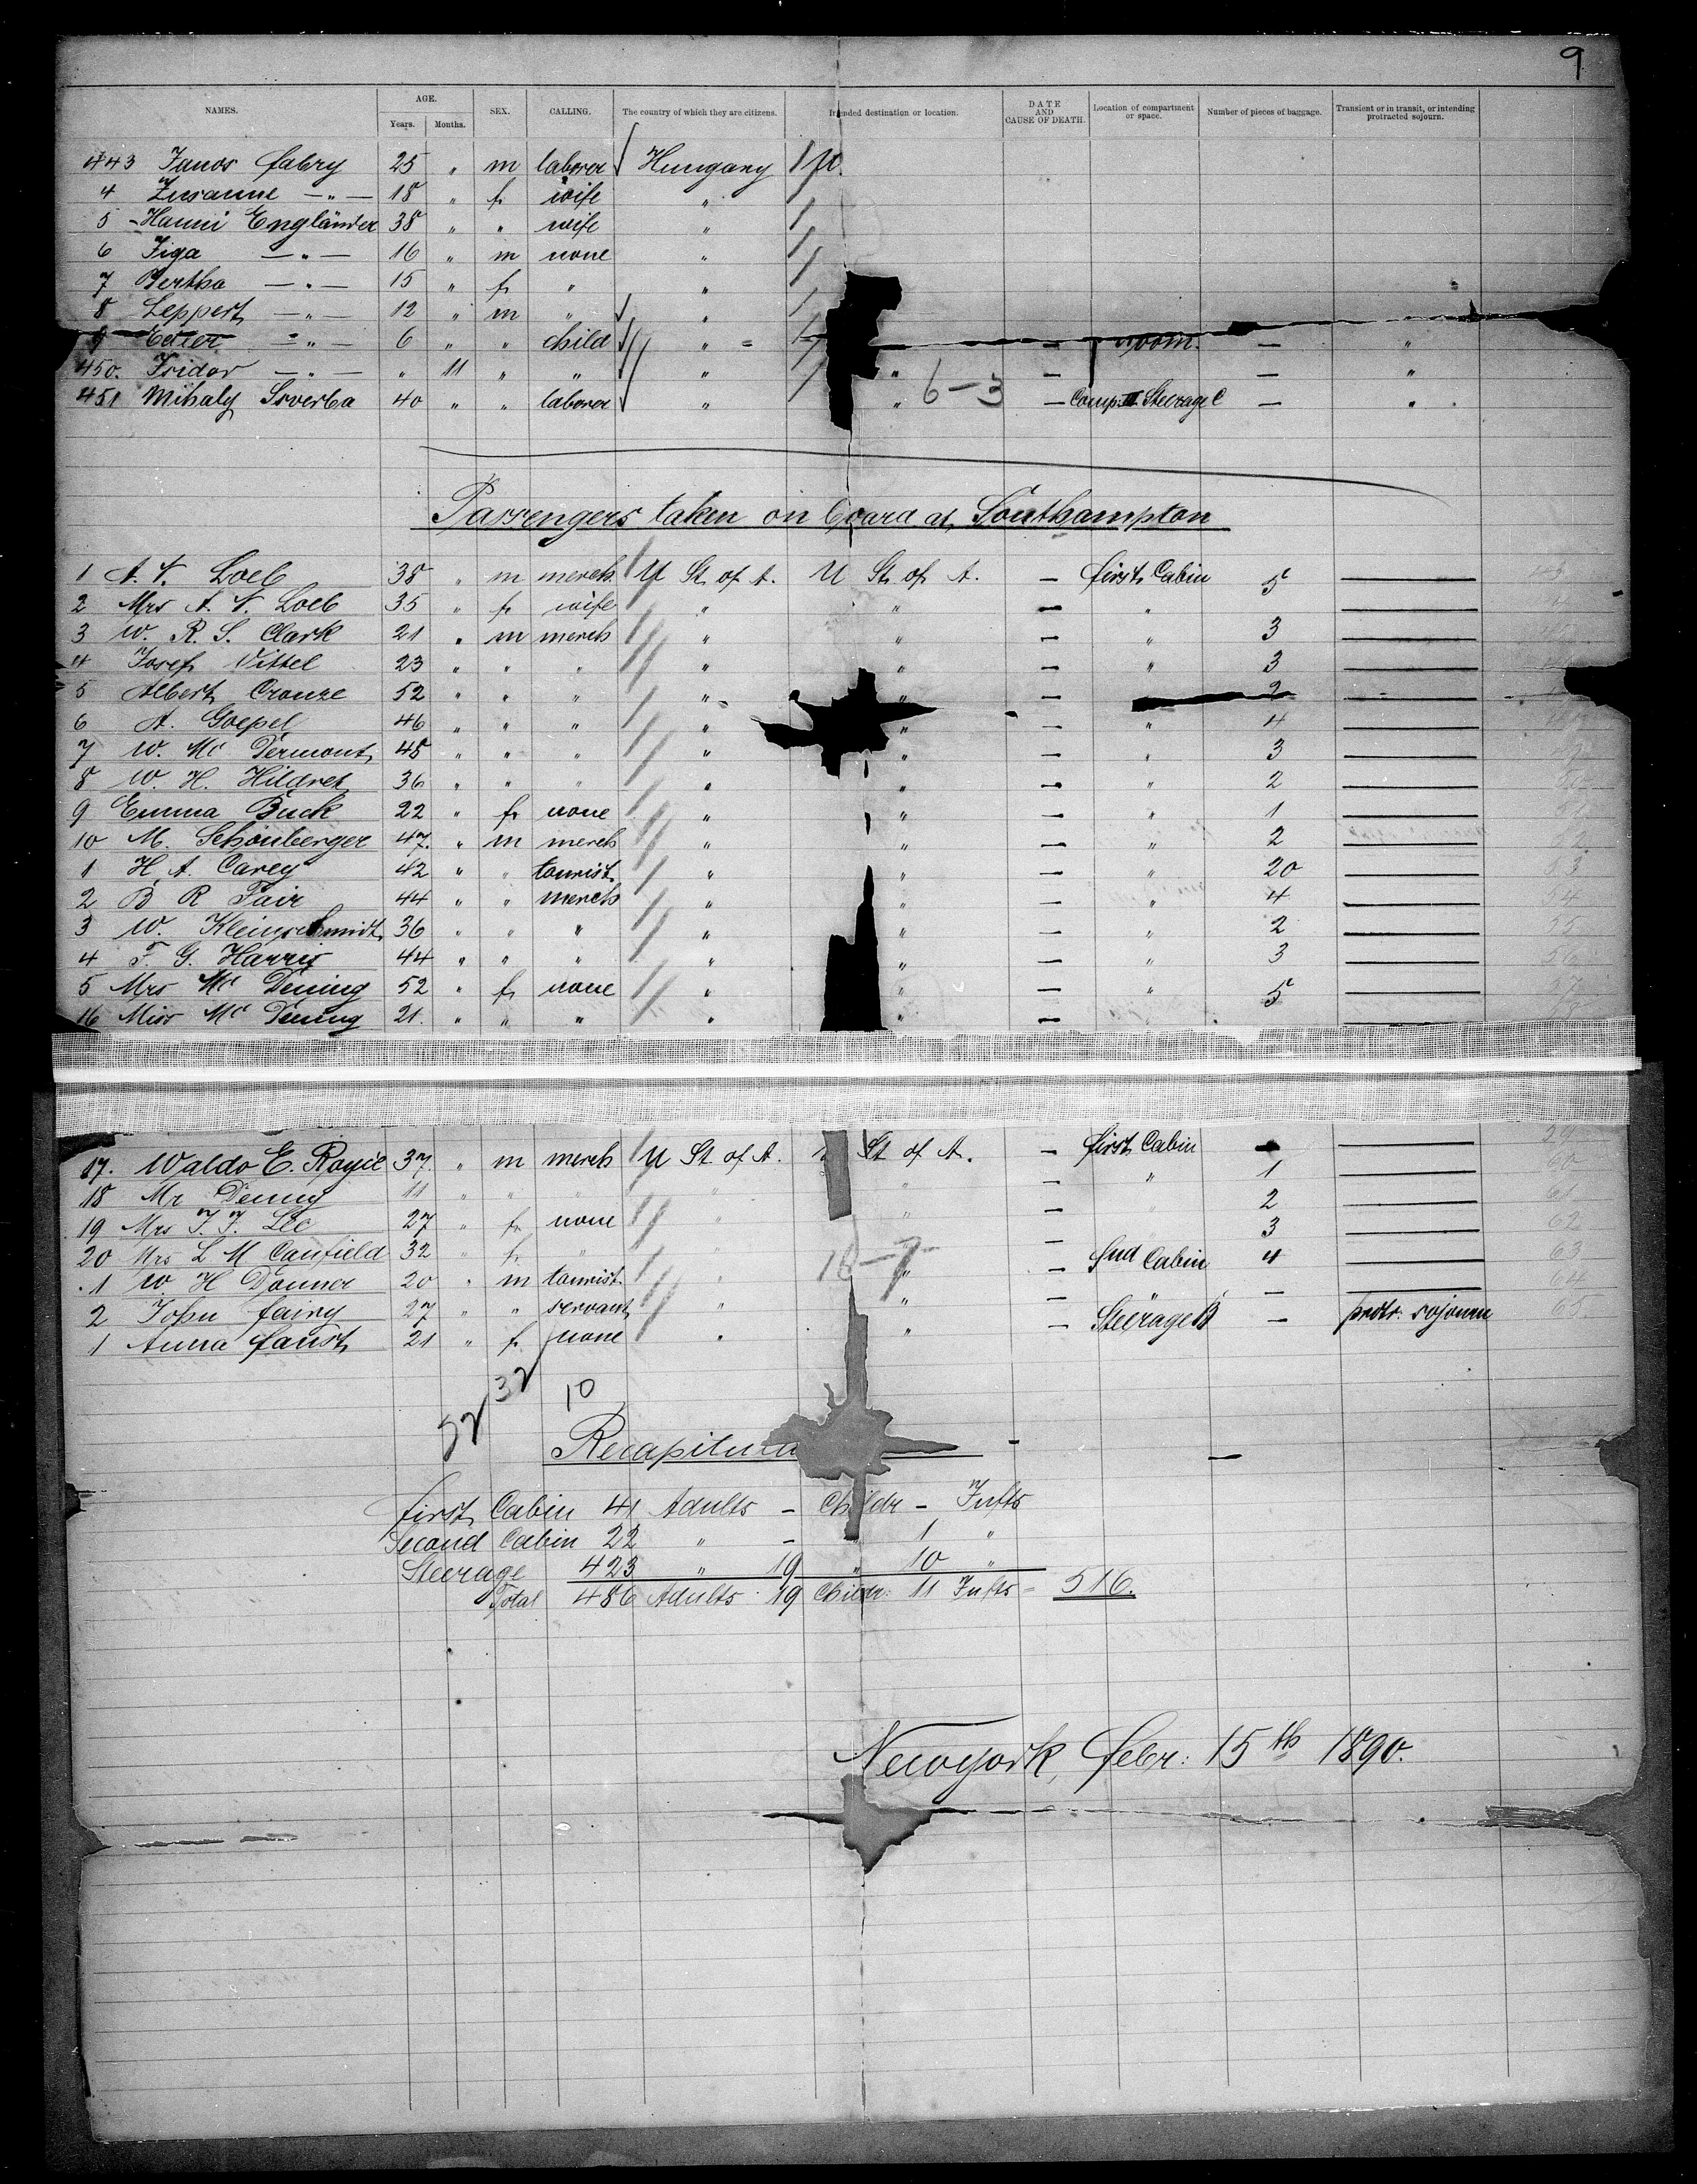 9
NAMES. AGE. Years. Months. SEX. CALLING. The country of which they are citizens. Intended destination or location. DATE AND CAUSE OF DEATH. Location of compartment or space. Number of pieces of baggage. Transient or in transit, or intending protracted sojourn.
443 Janos Fabry 25 " m laborer Hungary
4 Zusanne — " — 18 " f wife "
5 Hanni Engländer 38 " " wife "
6 Ziga — " — 16 " m none "
7 Bertha — " — 15 " f " "
8 Leppert — " — 12 " m " "
9 — " — 6 " " child " — room. — "
450. Isidor — " — " 11 " " " " " — — "
451 Mihaly 40 " " laborer " " 6-3 — Comp. II Steerage C — "
Passengers taken on board at Southampton
1 A. N. Loeb 38 " m merch U St of A. U St of A. — first Cabin 5 —
2 Mrs A. N. Loeb 35 " f wife " " — " —
3 W. R. S. Clark 21 " m merch " " — " 3 —
4 Josef Vittel 23 " " " " " — " 3 —
5 Albert Cronze 52 " " " " " — 2 —
6 A. Goepel 46 " " " " " " 4 —
7 W. Mc Dermont 45 " " " " " — " 3 —
8 W. H. Hildret 36 " " " " " — " 2 —
9 Emma Buck 22 " f none " " — " 1 —
10 M. Schönberger 47. " m merch " " — " 2 —
1 H. A. Carey 42 " " tourist " " — " 20 —
2 B R Fair 44 " " merch " " — " 4 —
3 W. Kleinschmidt 36 " " " " " — " 2 —
4 F. G. Harris 44 " " " " " — " 3 —
5 Mrs Mc Dening 52 " f none " " — " 5 —
16 Miss Mc Dening 21. " " " " " — —
17. Waldo E. 37. " m merch U St of A. St of A. — first Cabin —
18 Mr Denny 11 " " " " " — " 1 —
19 Mrs F. F. Lee 27 " f none " " — 2 —
20 Mrs L M Canfield 32 " f " " — 3 —
1 W. H Donner 20 " m tourist " 18-7 " — Snd Cabin 4 —
2 John 27 " " servant " " — — —
1 Anna Faust 21 " f none " " — Steerage B — protr. sojourn
32 10
Recapitula
First Cabin 41 Adults — Childr — Infts
Second Cabin 22 " — " 1 "
Steerage 423 " 19 " 10 "
Total 486 Adults 19 Childr. 11 Infts = 516.
Newyork, Febr: 15th 1890.